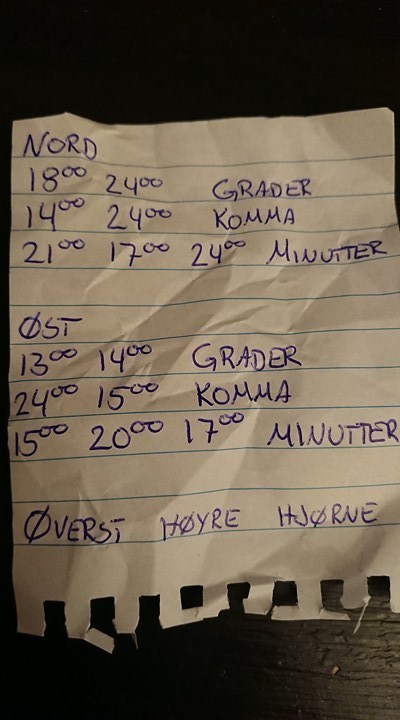 NORD
18⁰⁰ 24⁰⁰ GRADER
14⁰⁰ 24⁰⁰ KOMMA
21⁰⁰ 17⁰⁰ 24⁰⁰ MINUTTER
ØST
13⁰⁰ 14⁰⁰ GRADER
24⁰⁰ 15⁰⁰ KOMMA
15⁰⁰ 20⁰⁰ 17⁰⁰ MINUTTER
ØVERST HØYRE HJØRNE